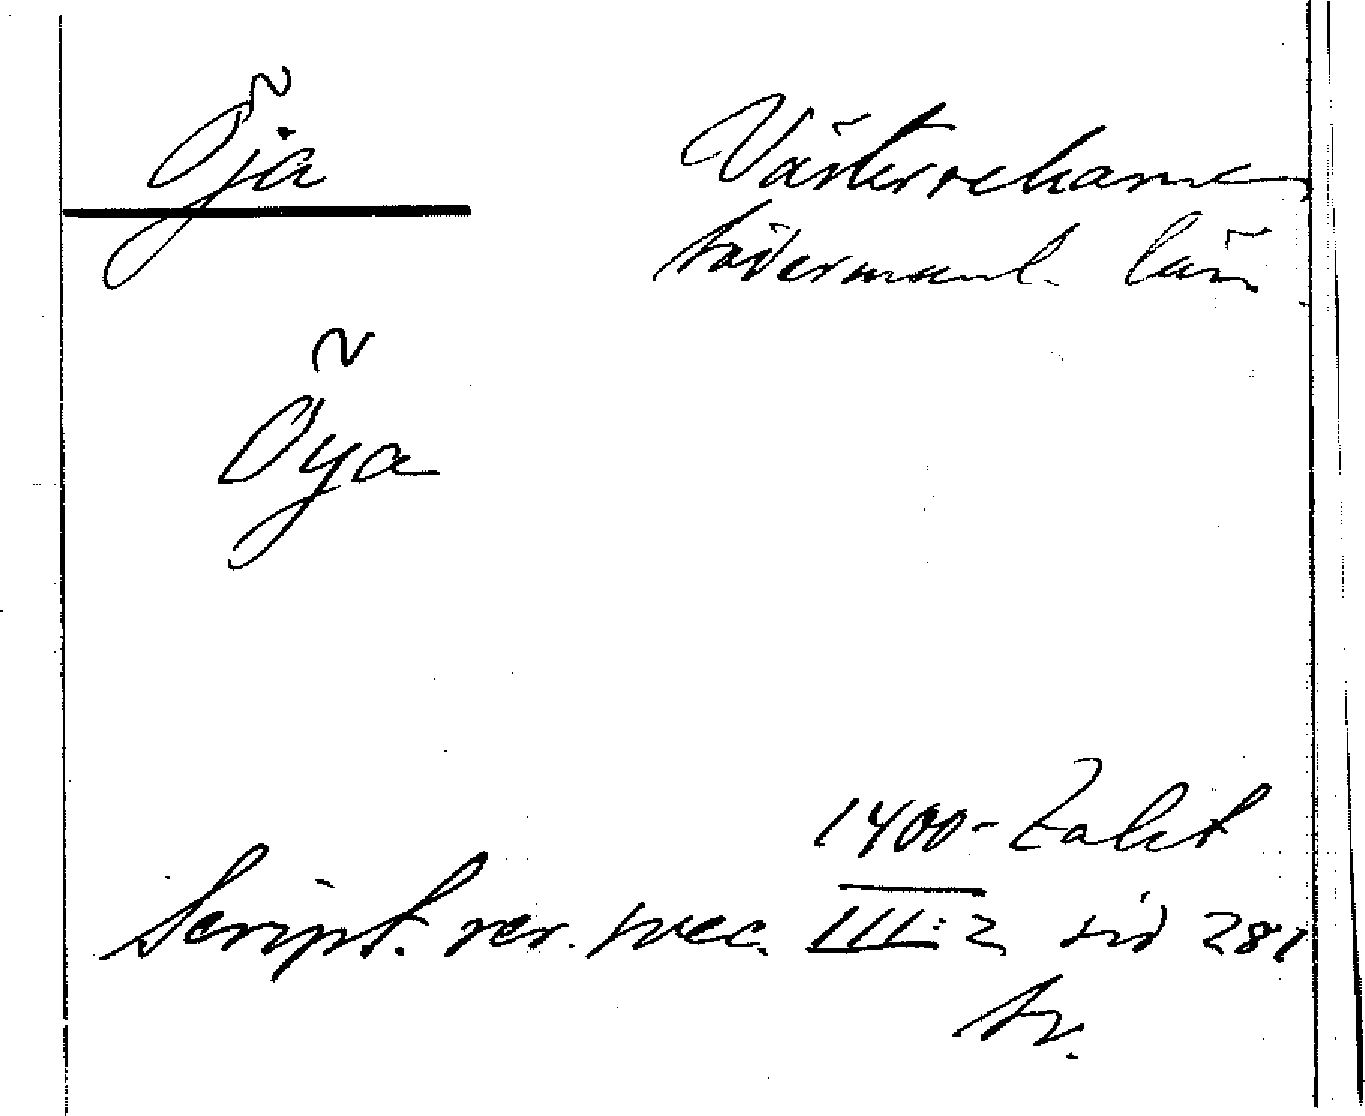 Öja Västerrekarne
Södermanl. län
Öya
1400-talet
Script. rer. svec. III:2 sid 281
tr.